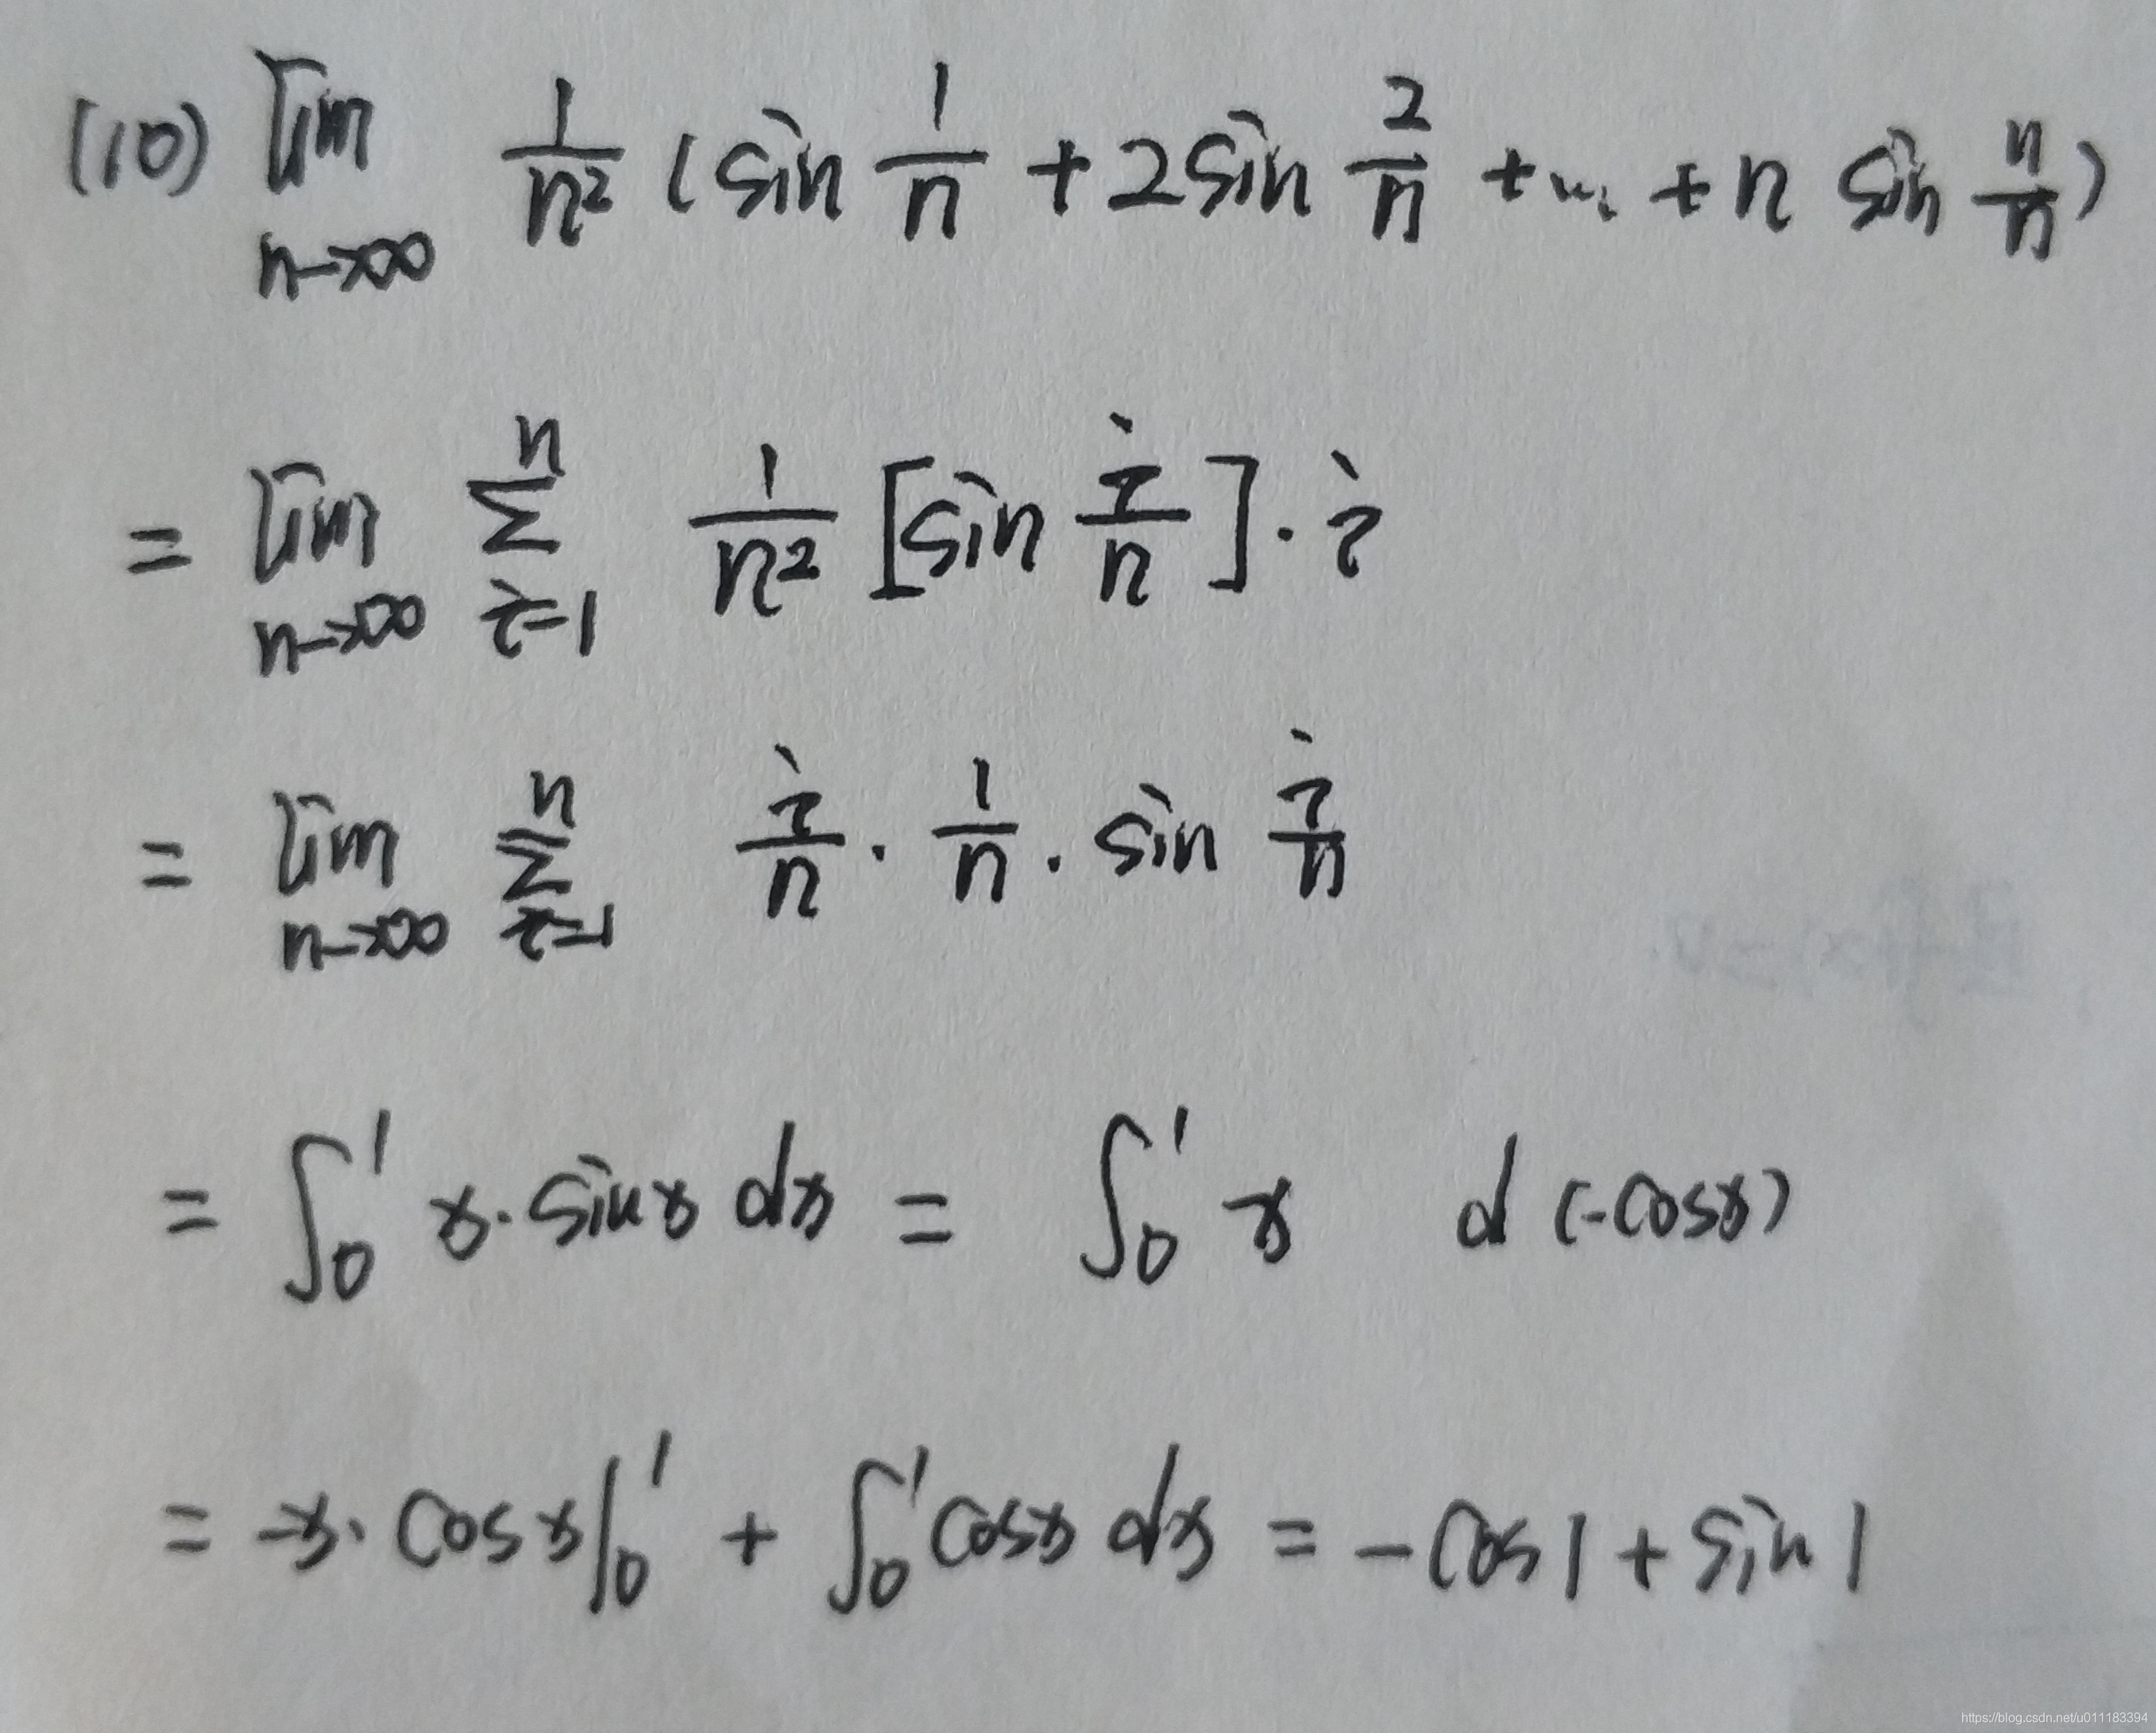 (10) lim n→∞ 1/n² (sin 1/n + 2sin 2/n + ... + n sin n/n)
= lim n→∞ ∑ i=1 n 1/n² [sin i/n] · i
= lim n→∞ ∑ i=1 n i/n · 1/n · sin i/n
= ∫₀¹ x · sinx dx = ∫₀¹ x d(-cosx)
= -x · cosx|₀¹ + ∫₀¹ cosx dx = -cos1 + sin1
https://blog.csdn.net/u011183394